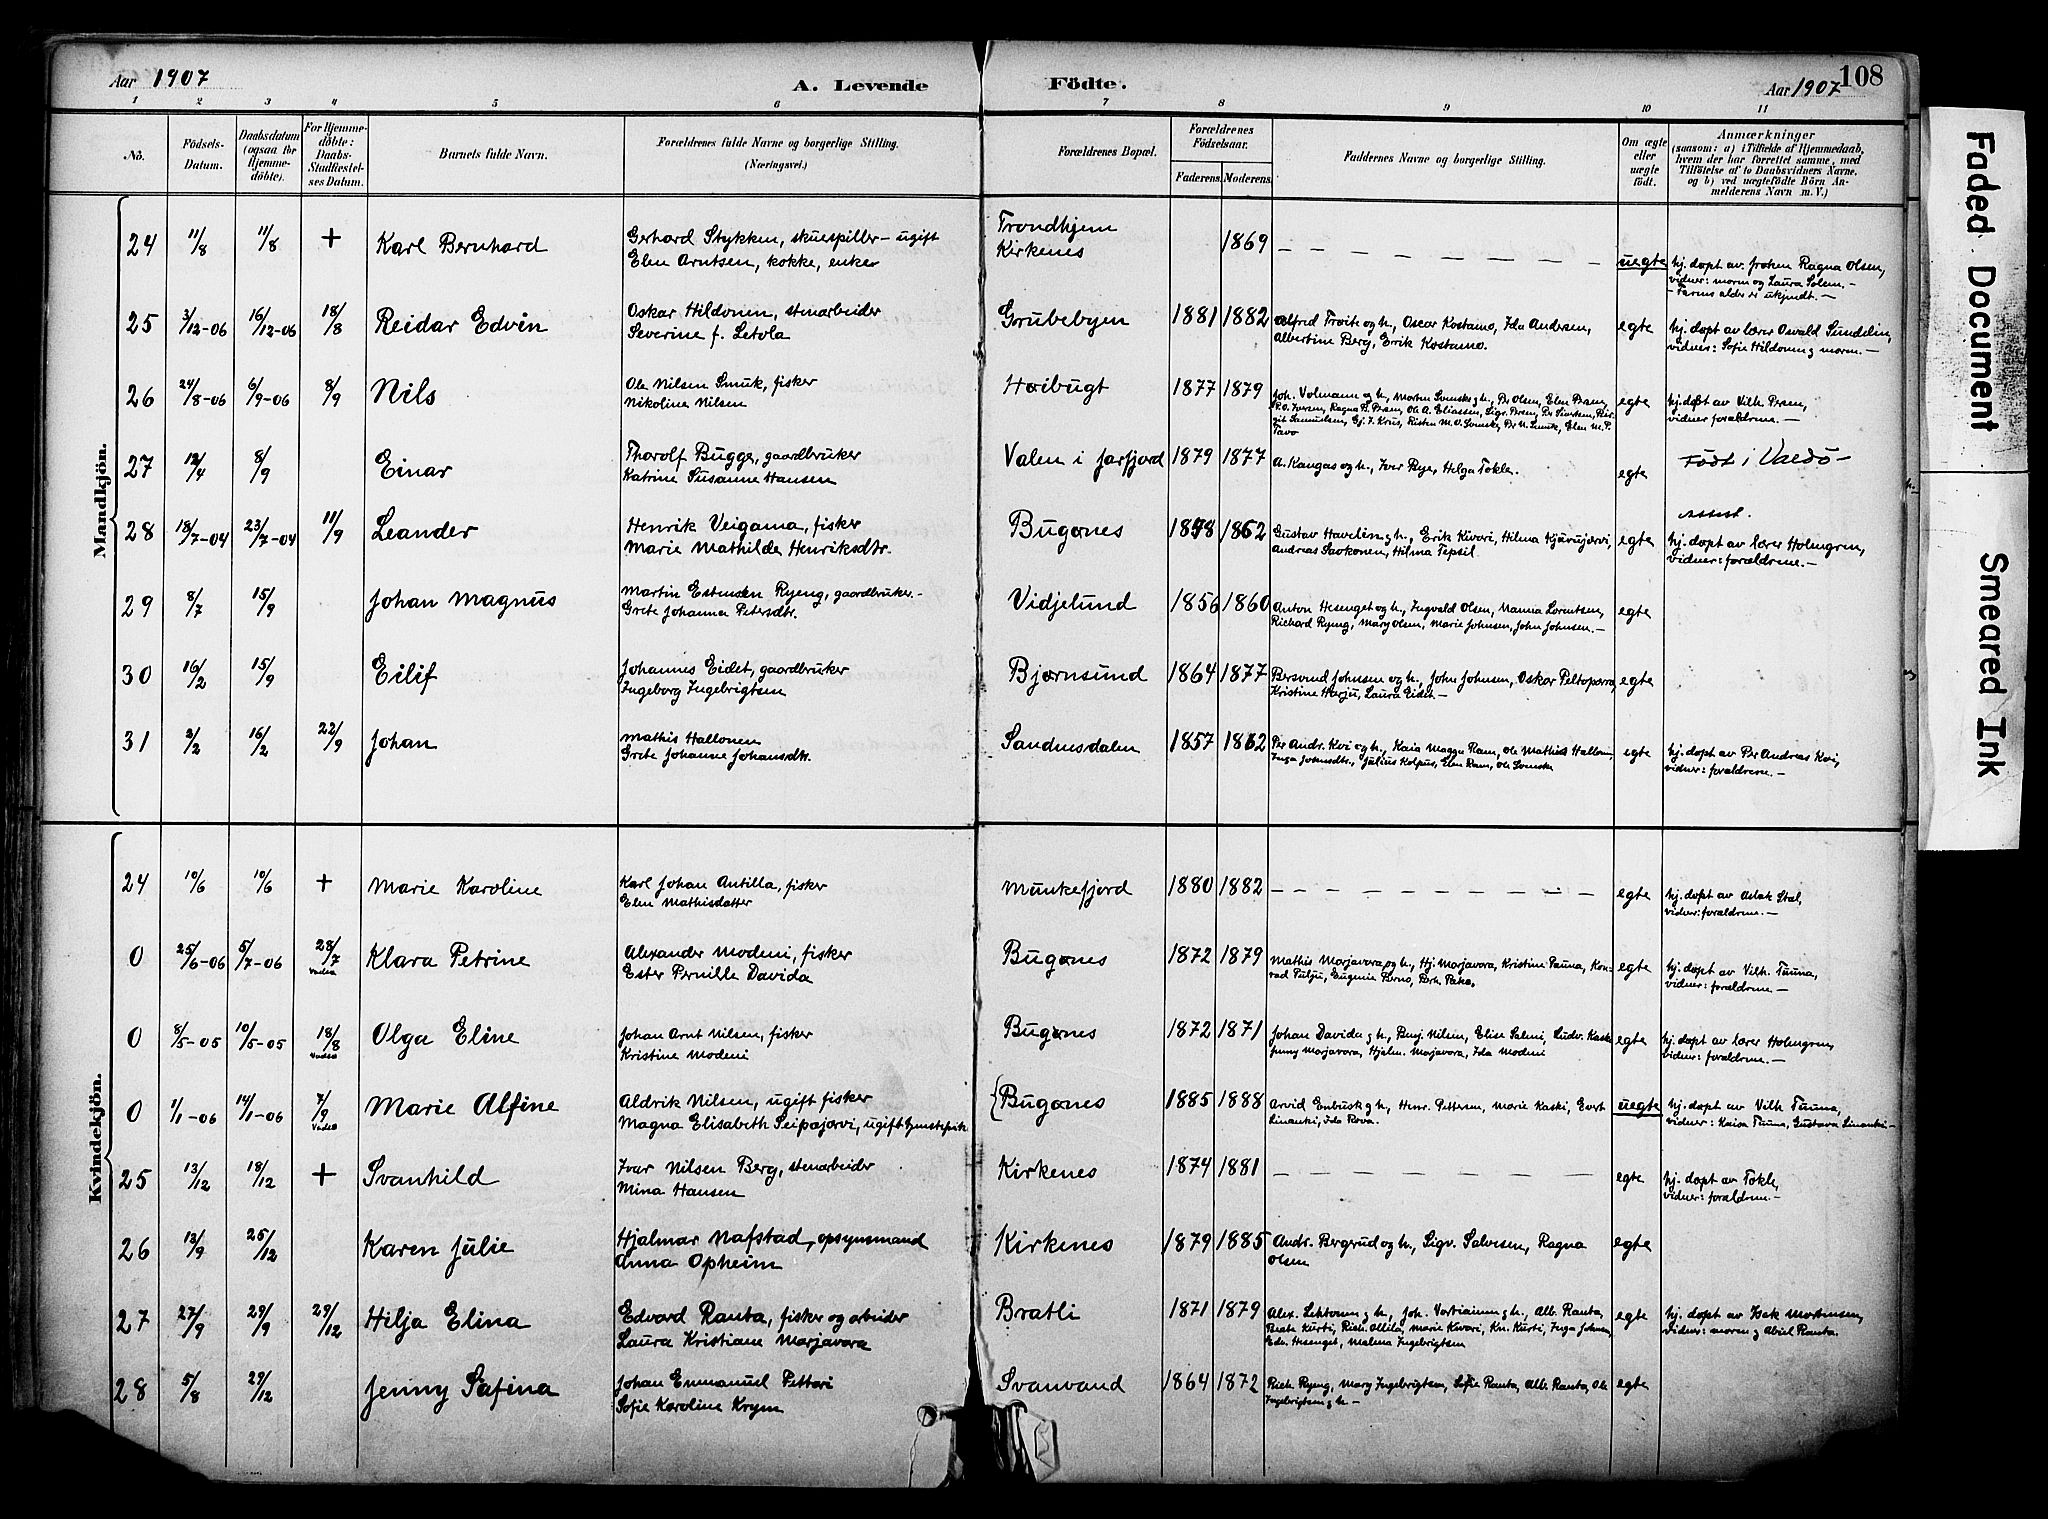 Aar 1907 A. Levende Födte. Aar 1907 108
1 2 3 4 5 6 7 8 9 10 11
No. Födsels-Datum. Daabsdatum (ogsaa for Hjemme-döbte). For Hjemme-döbte: Daabs-Stadfæstel-ses Datum. Barnets fulde Navn. Forældrenes fulde Navne og borgerlige Stilling. (Næringsvei.) Forældrenes Bopæl. Forældrenes Födselsaar. Faderens. Moderens. Faddernes Navne og borgerlige Stilling. Om ægte eller uægte födt. Anmærkninger (saasom: a) i Tilfælde af Hjemmedaab, hvem der har forrettet samme, med Tilföielse af to Daabsvidners Navne, og b) ved uægtefödte Börn An-melderens Navn m. V.)
Mandkjön.
24 11/8 11/8 + Karl Bernhard Gerhard Stykken, skuespiller - ugift Trondhjem
Elen Arntsen, kokke, enke Kirkenes 1869 — uegte hj. døpt av frøken Ragna Olsen,
vidner: morm og Laura Solem. -
- Farens alder er ukjendt. -
25 3/12-06 16/12-06 18/8 Reidar Edvin Oskar Hildonen, stenarbeider Grubebyen 1881 1882 Alfred Troite og h., Oscar Kostamo, Ida Andersen, egte hj. døpt av lærer Osvald Sundelin,
Severine f. Letola Albertine Berg, Erik Kostamo. vidner: Sofie Hildonen og moren. -
26 24/8-06 6/9-06 8/9 Nils Ole Nilsen Smuk, fisker Høibugt 1877 1879 Joh. Volmann og h., egte hj. døbt av Vilh.
Nikoline Nilsen vidner forældrene. -
27 12/4 8/9 Einar Thorolf Bugge, gaardbruker Valen i Jarfjord 1879 1877 A. Kangas og h., Iver Rye, Helga Tokle. egte Født i Vardö -
Katrine Susanne Hansen
28 18/7-04 23/7-04 11/9 Leander Henrik Veigama, fisker Bugønes 1862 Gustav Havelin og h., Erik Kivari, Hilma egte hj. døpt av lærer Holmgren,
Marie Mathilde Henriksdtr. Andreas Saokonen, Hilma Tepsil vidner: forældrene. -
29 8/7 15/9 Johan Magnus Martin Estensen Ryeng, gaardbruker. - Vidjelund 1856 1860 Anton Hesenget og h., Ingvald Olsen, Nanna Lorentsen, egte
Grete Johanna Petersdtr. Richard Ryeng, Mary Olsen, Marie Johnsen, John Johnsen. -
30 16/2 15/9 Eilif Johannes Eidet, gaardbruker Bjørnsund 1864 1877 Bersvend Johnsen og h., John Johnsen, Oskar egte
Ingeborg Ingebrigtsen Kristine Harju, Laura Eidet -
31 2/2 16/2 22/9 Johan Mathis Hallonen Sandnesdalen 1857 1862 Per Andr. Kvi og h., Kaia Magga Ram, Ole Mathias egte hj. døpt av Per Andreas Kvi,
Grete Johanne Johansdtr. Inga Johnsdtr., Julius Kolpus, Elen Ram, Ole vidner: forældrene. -
Kvindekjön.
24 10/6 10/6 + Marie Karoline Karl Johan Antilla, fisker Munkefjord 1880 1882 — egte hj. døpt av Aslak Stal,
Elen Mathisdatter vidner: forældrene. -
0 25/6-06 5/7-06 28/7 Vadsø Klara Petrine Alexander Modeni, fisker Bugønes 1872 1879 Mathis Marjavara og h., Hj. Marjavara, Kristine Pauna, Kon- egte hj. døpt av Vilh. Tuuna,
Ester Pernille Davida vidner: forældrene. -
0 8/5-05 10/5-05 18/8 Vadsø Olga Eline Johan Arnt Nilsen, fisker Bugønes 1872 1871 Johan Davida og h., Benj. Nilsen, Elise Salmi, Ludv. Kaski egte hj. døpt av lærer Holmgren,
Kristine Modeni Jenny Marjavara, Hjalm. Marjavara, Ida Modeni vidner: forældrene. -
0 1/1-06 14/1-06 7/9 Vadsø Marie Alfine Aldrik Nilsen, ugift fisker Bugønes 1885 1888 Arvid Enbusk og h., Henr. Pettersen, Marie Kaski, Evert uegte hj. døpt av Vilh Tuuna,
Magna Elisabeth Seipæjærvi, ugift tjenestepike Linanki, Ida Rova. vidner: Kaisa Tuuna, Gustava Linanki -
25 13/12 18/12 + Svanhild Ivar Nilsen Berg, stenarbeider Kirkenes 1874 1881 — egte hj. døpt av Tokle,
Mina Hansen vidner: forældrene. -
26 13/9 25/12 Karen Julie Hjalmar Nafstad, opsynsmand Kirkenes 1879 1885 Andr. Bergerud og h., Sigv. Salvesen, Ragna egte
Anna Opheim Olsen
27 27/9 29/9 29/12 Hilja Elina Edvard Ranta, fisker og arbeider Bratli 1871 1879 Alex. Lehtonen og h., Joh. Vartiainen og h., Alb. Ranta, egte hj. døpt av Isak Mortensen,
Laura Kristiane Marjavara Beate Kurti, Rich. Ollila, Marie Kivari, Kr. Kurti, Inga Johnsen, vidner: moren og Abiel Ranta.
Edv. Hesenget, Malena Ingebrigtsen
28 5/8 29/12 Jenny Safina Johan Emmanuel Pettari Svanvand 1864 1872 Rich. Ryeng, Mary Ingebrigtsen, Sofie Ranta, Alb. Ranta, Ole egte
Sofie Karoline Krym Ingebrigtsen og h. -
Faded Document
Smeared Ink